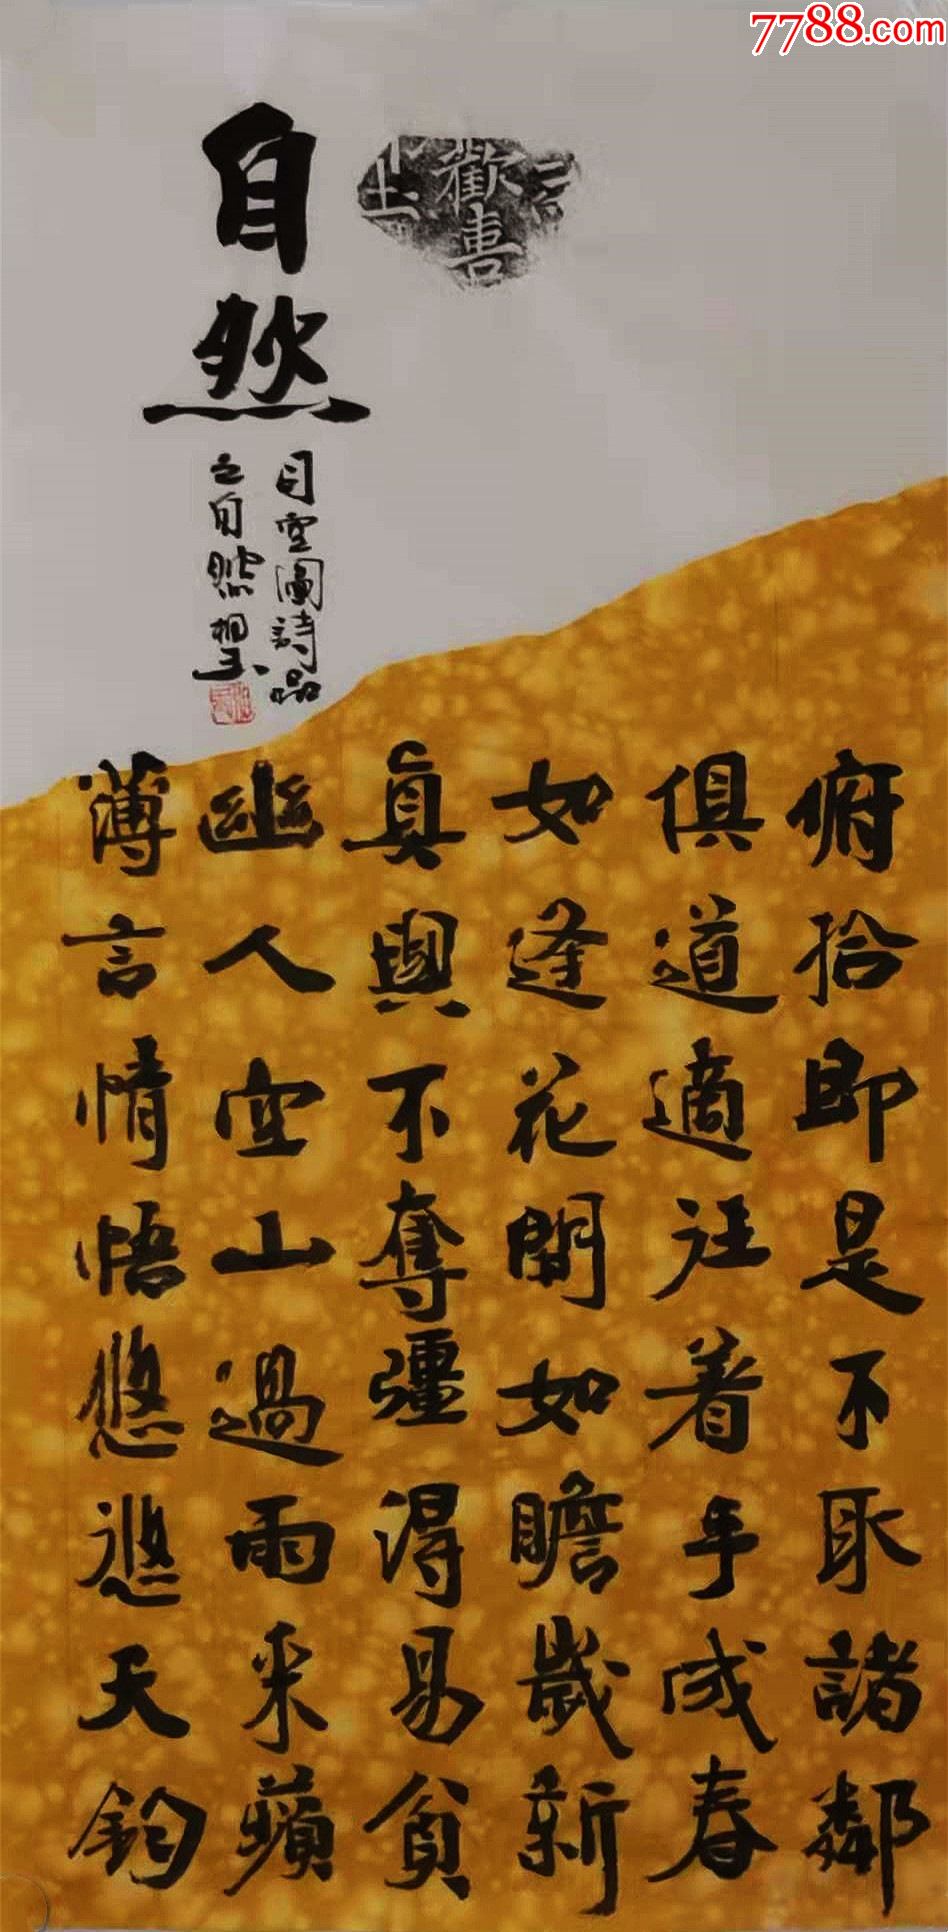 7788.com
歡
自然
俯拾即是不取諸鄰
俱道適往着手成春
如逢花開如瞻歲新
真與不奪彊得易貧
幽人空山過雨采蘋
薄言情悟悠悠天鈞
司空圖詩品
之自然